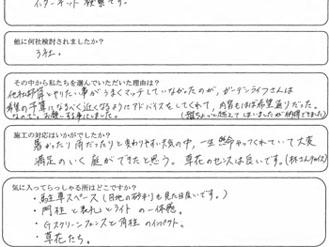 インターネット検索です。
他に何社検討されましたか？
3社。
その中から私たちを選んでいただいた理由は？
他社様とやりたい事がうまくマッチしていなかったのが、ガーデンライフさんは
希望の予算になるべく近くなるようにアドバイスをしてくれて、内容もほぼ希望通りだった。
なので、お願いする事にしました。（ちょっと超えてしまいましたが納得できました）
施工の対応はいかがでしたか？
暑かったり雨だったりと変わりやすい天気の中、一生懸命やってくれていて大変
満足のいく庭ができたと思う。草花のセンスは良いです。
気に入ってらっしゃる所はどこですか？
・駐車スペース（目地の砂利も見た目良いです。）
・門柱と表札とライトの一体感。
・Gスクリーンフェンスと角柱のインパクト。
・草花たち。